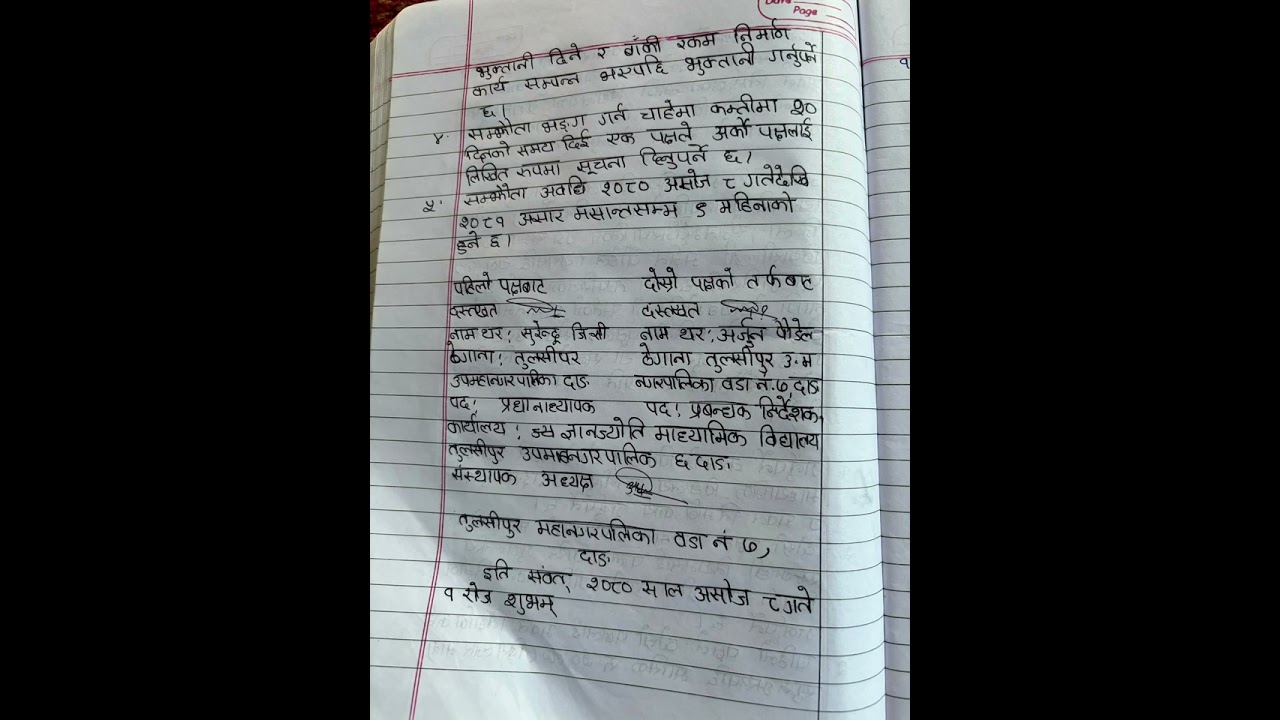 Date
Page
भुक्तानी दिने र बाँकी रकम निर्माण
कार्य सम्पन्न भएपछि भुक्तानी गर्नुपर्ने
छ।
४. सम्झौता भङ्ग गर्न चाहेमा कम्तीमा १०
दिनको समय दिई एक पक्षले अर्को पक्षलाई
लिखित रुपमा सूचना दिनुपर्ने छ।
५. सम्झौता अवधि २०८० असोज ८ गतेदेखि
२०८१ असार मसान्तसम्म ९ महिनाको
हुने छ।
पहिलो पक्षबाट दोस्रो पक्षको तर्फबाट
दस्तखत दस्तखत
नाम थर: सुरेन्द्र जिसी नाम थर: अर्जुन पौडेल
ठेगाना: तुलसीपर ठेगाना तुलसीपुर उ.म
उपमहानगरपालिका दाङ नगरपालिका वडा नं.७, दाङ
पद: प्रधानाध्यापक पद: प्रबन्धक निर्देशक,
कार्यालय: ज्ञानज्योति माध्यामिक विद्यालय
तुलसीपुर उपमहानगरपालिक ६ दाङ
संस्थापक अध्यक्ष
तुलसीपुर महानगरपालिका वडा नं ७,
दाङ
इति संवत् २०८० साल असोज ८ गते
१ रोज शुभम्